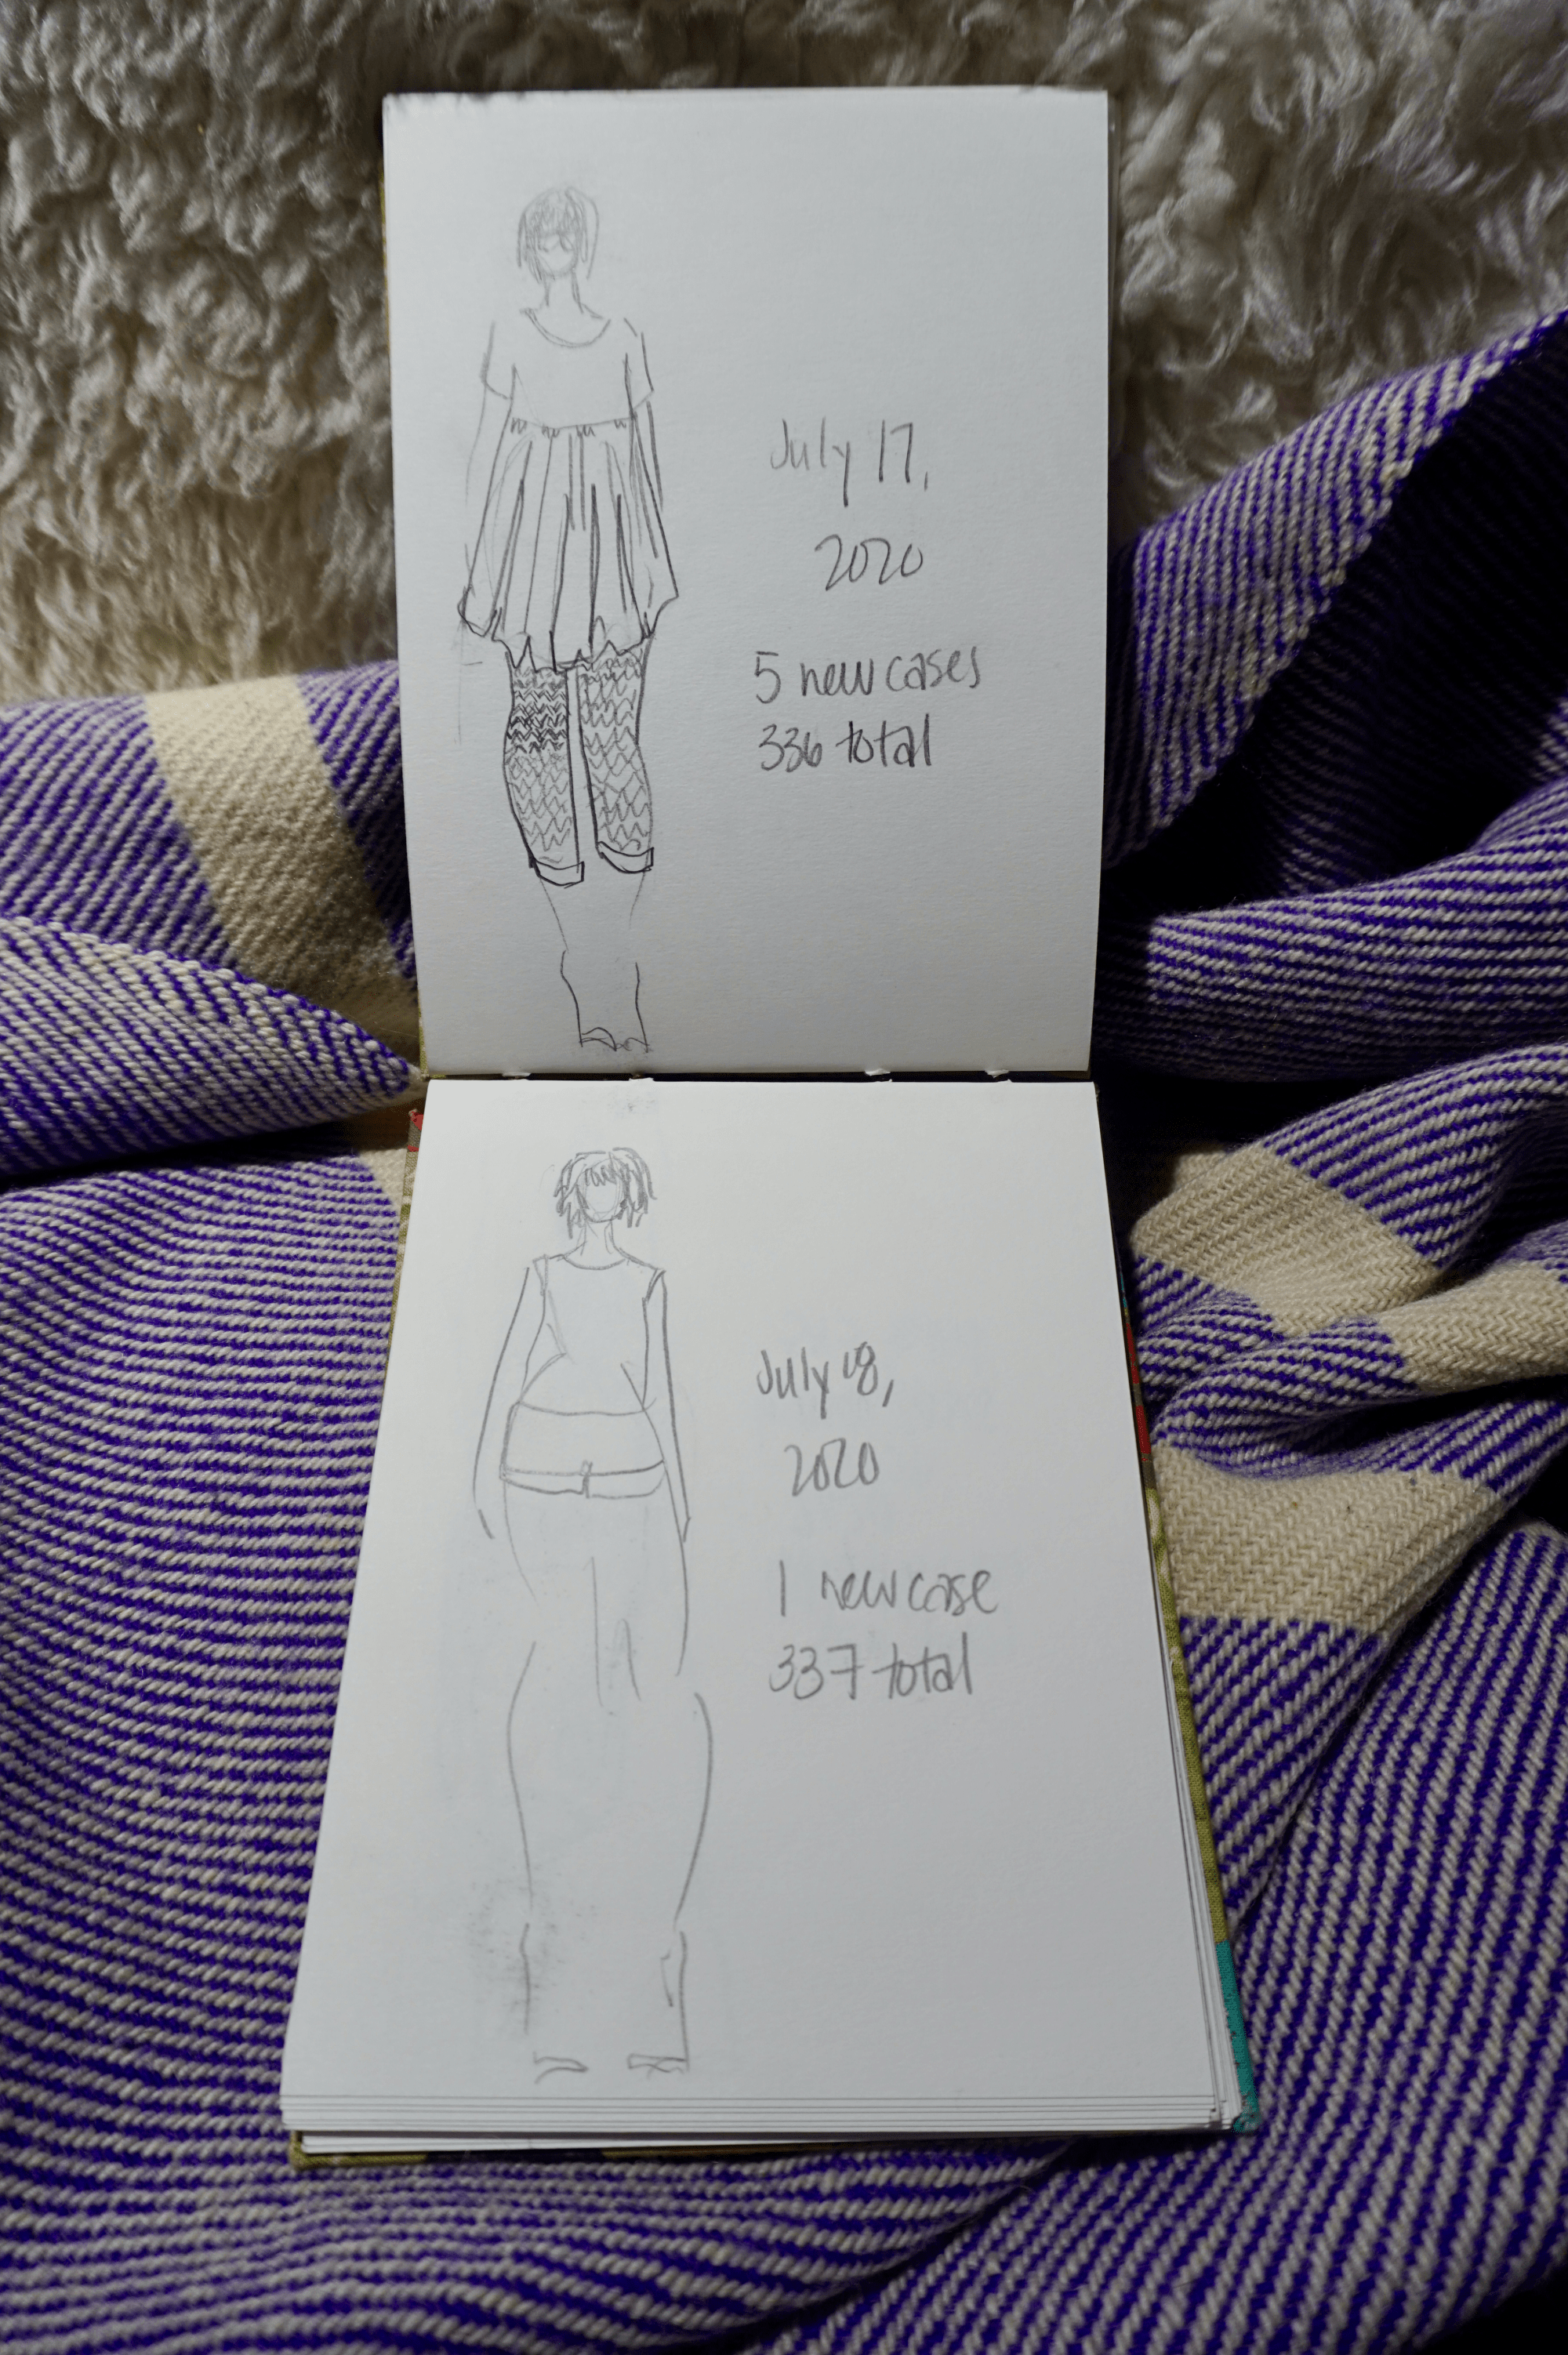 July 17,
2020
5 new cases
336 total
July 18,
2020
1 new case
337 total